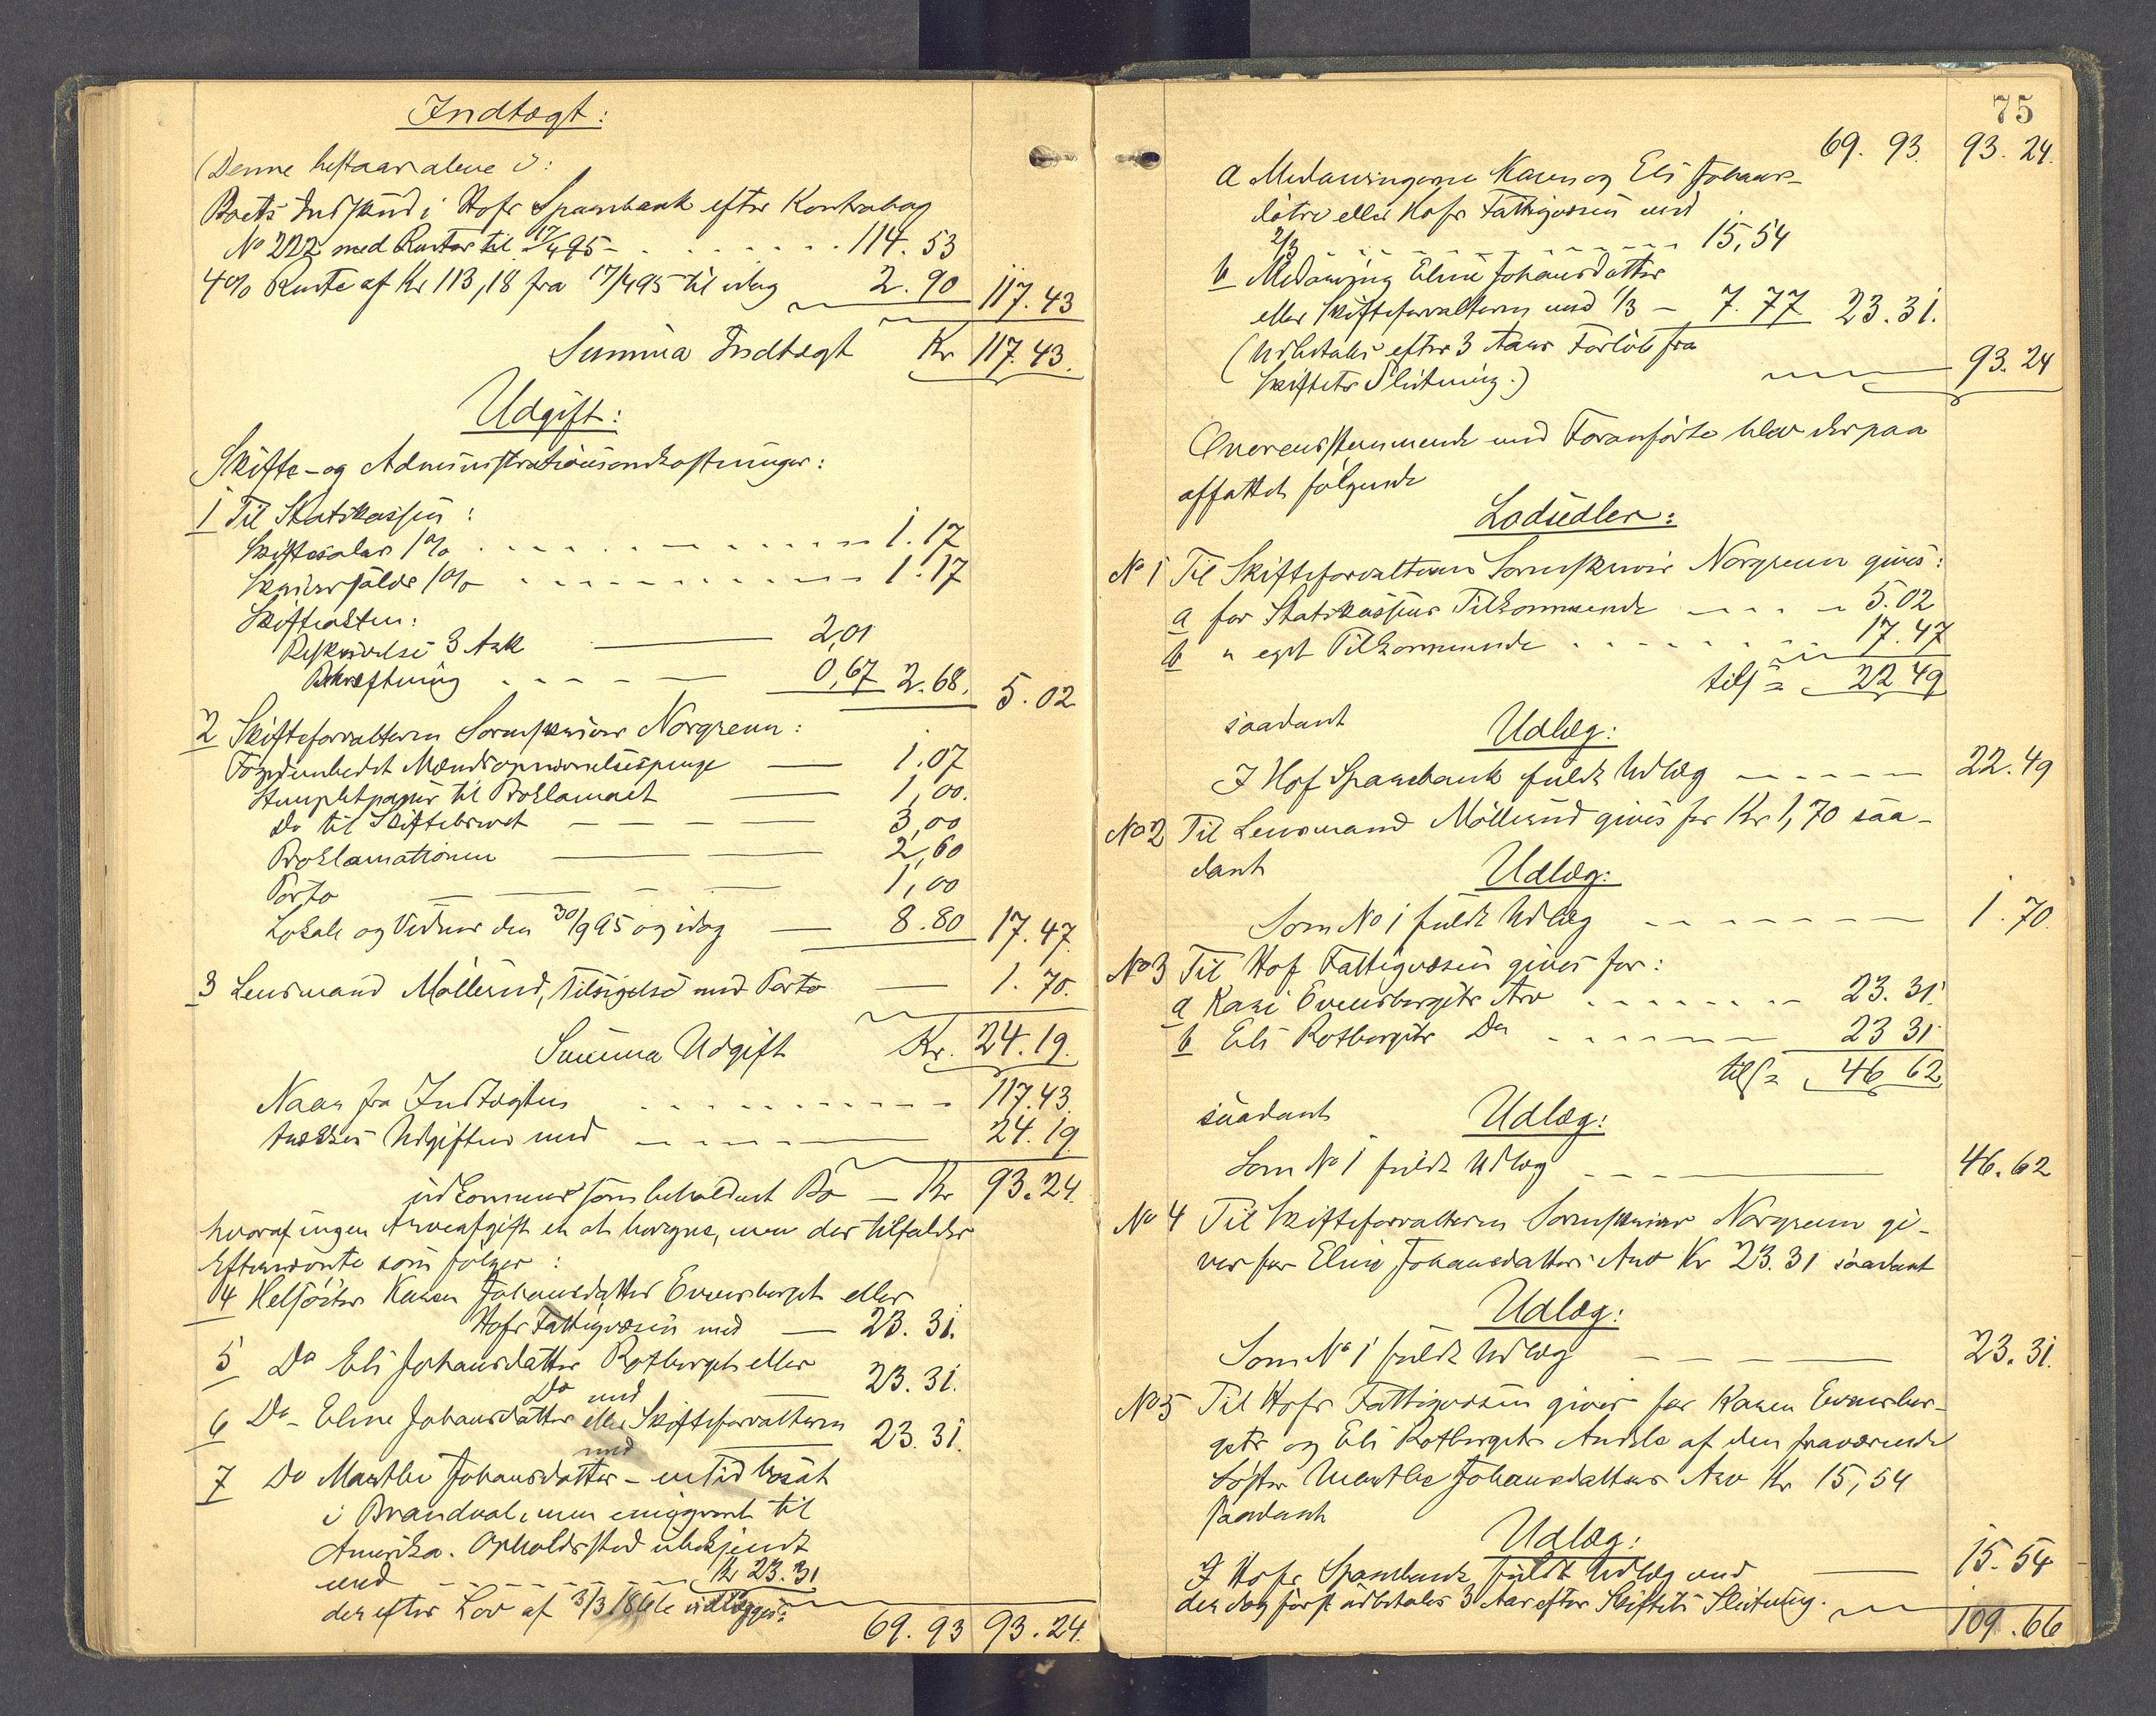 Indtægt:
(Denne bestaar alene i:
Boets Indskud i Hofs Sparebank efter Kontrabog
No 222 med Renter til 17/4 95 - 114.53
4% Rente af Kr 113,18 fra 17/4 95 til idag 2.90 117.43
Summa Indtægt Kr 117.43.
Udgift:
Skifte- og Administrationsomkostninger:
1 Til Statskassen:
Skiftesalær 1% 1.17
Skriverfolde 1% 1.17
Skifteakten:
Beskrivelse 3 Ark 2,01
Bekræftning 0,67 2.68. 5.02
2 Skifteforvalteren Sorenskriver Norgrenn:
Mændsopnævnelsespenge 1.07
Stemplet papir til Proklamaet 1,00.
Do til Skiftebrevet 3,00
Proklamationen 2,60
Porto 1,00
Lokale og Vidner den 30/9 95 og idag 8.80 17.47.
3 Lensmand Möllerud, Tilsigelse med Porto 1.70.
Summa Udgift Kr. 24.19.
Naar fra Indtægten 117.43.
trækkes Udgiften med 24.19
udkommer som beholdent Bo - Kr 93.24.
hvoraf ingen Arveafgift er at beregne, men der tilfalder
Efternævnte som følger:
4 Helsöster Karen Johansdatter Evensberget eller
Hofs Fattigvæsen med 23.31.
5 Do Eli Johansdatter Rotberget eller
Do med 23.31.
6 Do Eline Johansdatter eller Skifteforvalteren
med 23.31.
7 Do Marthe Johansdatter - en Tid bosat
i Brandval, men emigreret til
Amerika. Opholdssted ubekjendt
med Kr 23.31
der efter Lov af 3/3 1866 udlægges:
69.93 93.24.
75
69.93. 93.24.
a Medarvingerne Karen og Eli Johans-
døtre eller Hofs Fattigvæsen med
2/3 15,54
b Medarving Eline Johansdatter
eller Skifteforvalteren med 1/3 - 7.77 23.31.
(Udbetales efter 3 Aars Forløb fra
Skiftets Slutning.) 93.24
Overensstemmende med Foranførte blev derpaa
affattet følgende
Lodsedler:
No 1 Til Skifteforvalteren Sorenskriver Norgrenn gives:
a for Statskassens Tilkommende 5.02
b " eget Tilkommende 17.47
tils = 22 49
saadant Udlæg:
I Hof Sparebank fuldt Udlæg 22.49
No 2 Til Lensmand Möllerud gives for Kr 1,70 saa-
dant Udlæg:
Som No 1 fuldt Udlæg 1.70.
No 3 Til Hof Fattigvæsen gives for:
a Kari Evensbergets Arv 23.31.
b Eli Rotbergets Do 23 31
tils = 46 62
saadant Udlæg:
Som No 1 fuldt Udlæg 46.62
No 4 Til Skifteforvalteren Sorenskriver Norgrenn gi-
ves for Eline Johansdatters Arv Kr 23.31 saadant
Udlæg:
Som No 1 fuldt Udlæg 23.31.
No 5 Til Hofs Fattigvæsen gives for Karen Evensber-
gets og Eli Rotbergets Andele af den fraværende
Søster Marthe Johansdatters Arv Kr 15,54
saadant
Udlæg:
I Hofs Sparebank fuldt Udlæg med 15.54
der dog først udbetales 3 Aar efter Skiftets Slutning.
109.66